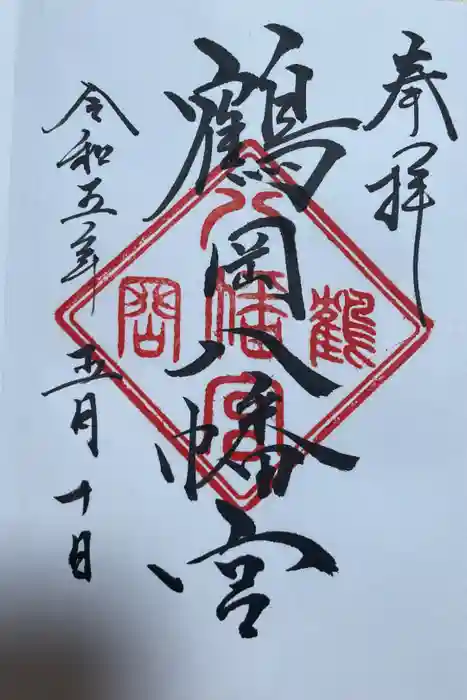 奉拝
鶴岡八幡宮
鶴岡
八幡宮
令和五年五月十日